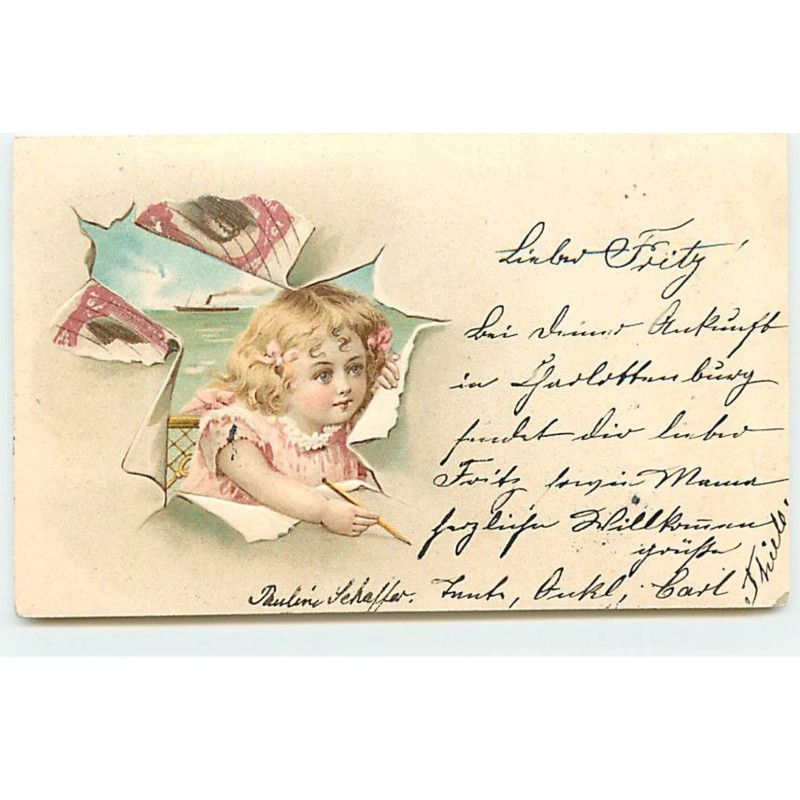 Lieber Fritz!
Bei deiner Ankunft
in Charlottenburg
sendet dir lieber
Fritz sowie Mama
herzliche Willkommen
grüße
Tante, Onkl, Carl Thiele.
Pauline Schaffer.